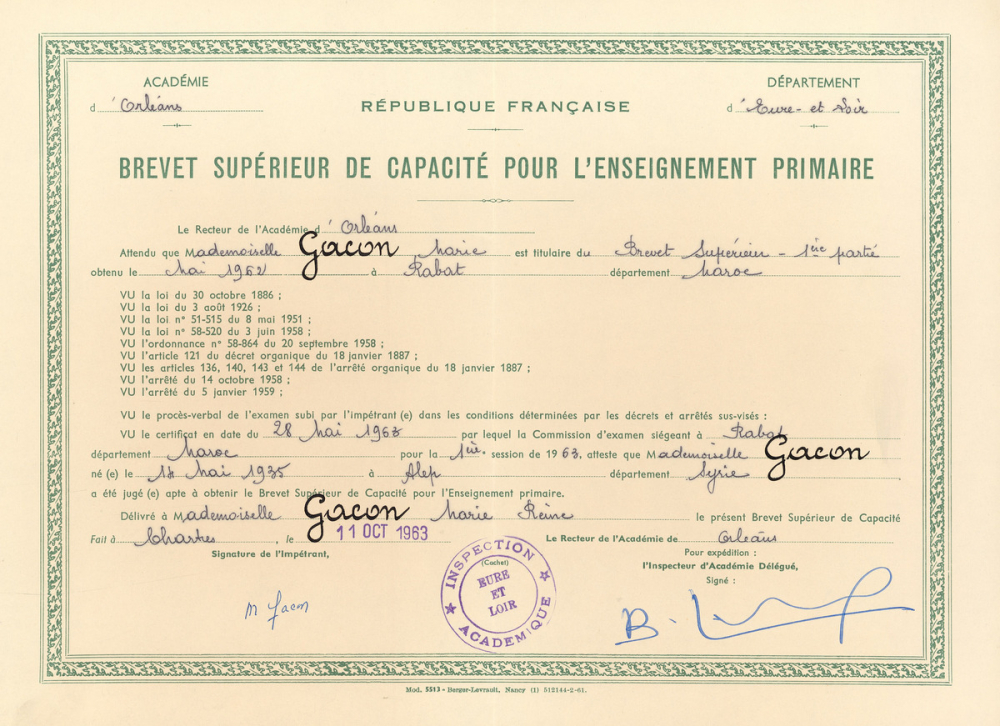 ACADÉMIE
d'Orléans
RÉPUBLIQUE FRANÇAISE
DÉPARTEMENT
d'Eure-et Loir
BREVET SUPÉRIEUR DE CAPACITÉ POUR L'ENSEIGNEMENT PRIMAIRE
Le Recteur de l'Académie d'Orléans
Attendu que Mademoiselle Gacon Marie est titulaire du Brevet Supérieur - 1ère partie
obtenu le Mai 1962 à Rabat département Maroc
VU la loi du 30 octobre 1886 ;
VU la loi du 3 août 1926 ;
VU la loi n° 51-515 du 8 mai 1951 ;
VU la loi n° 58-520 du 3 juin 1958 ;
VU l'ordonnance n° 58-864 du 20 septembre 1958 ;
VU l'article 121 du décret organique du 18 janvier 1887 ;
VU les articles 136, 140, 143 et 144 de l'arrêté organique du 18 janvier 1887 ;
VU l'arrêté du 14 octobre 1958 ;
VU l'arrêté du 5 janvier 1959 ;
VU le procès-verbal de l'examen subi par l'impétrant (e) dans les conditions déterminées par les décrets et arrêtés sus-visés :
VU le certificat en date du 28 Mai 1963 par lequel la Commission d'examen siégeant à Rabat
département Maroc pour la 1ère. session de 1963, atteste que Mademoiselle Gacon
né (e) le Mai 1935 à Alep département Syrie
a été jugé (e) apte à obtenir le Brevet Supérieur de Capacité pour l'Enseignement primaire.
Délivré à Mademoiselle Gacon Marie Reine le présent Brevet Supérieur de Capacité
Fait à Chartres, le 11 OCT 1963 Le Recteur de l'Académie de Orléans
Signature de l'Impétrant,
Pour expédition :
l'Inspecteur d'Académie Délégué,
Signé :
INSPECTION
(Cachet)
EURE
ET
LOIR
ACADEMIQUE
M Gacon
Mod. 5513 - Berger-Levrault, Nancy (1) 512144-2-61.